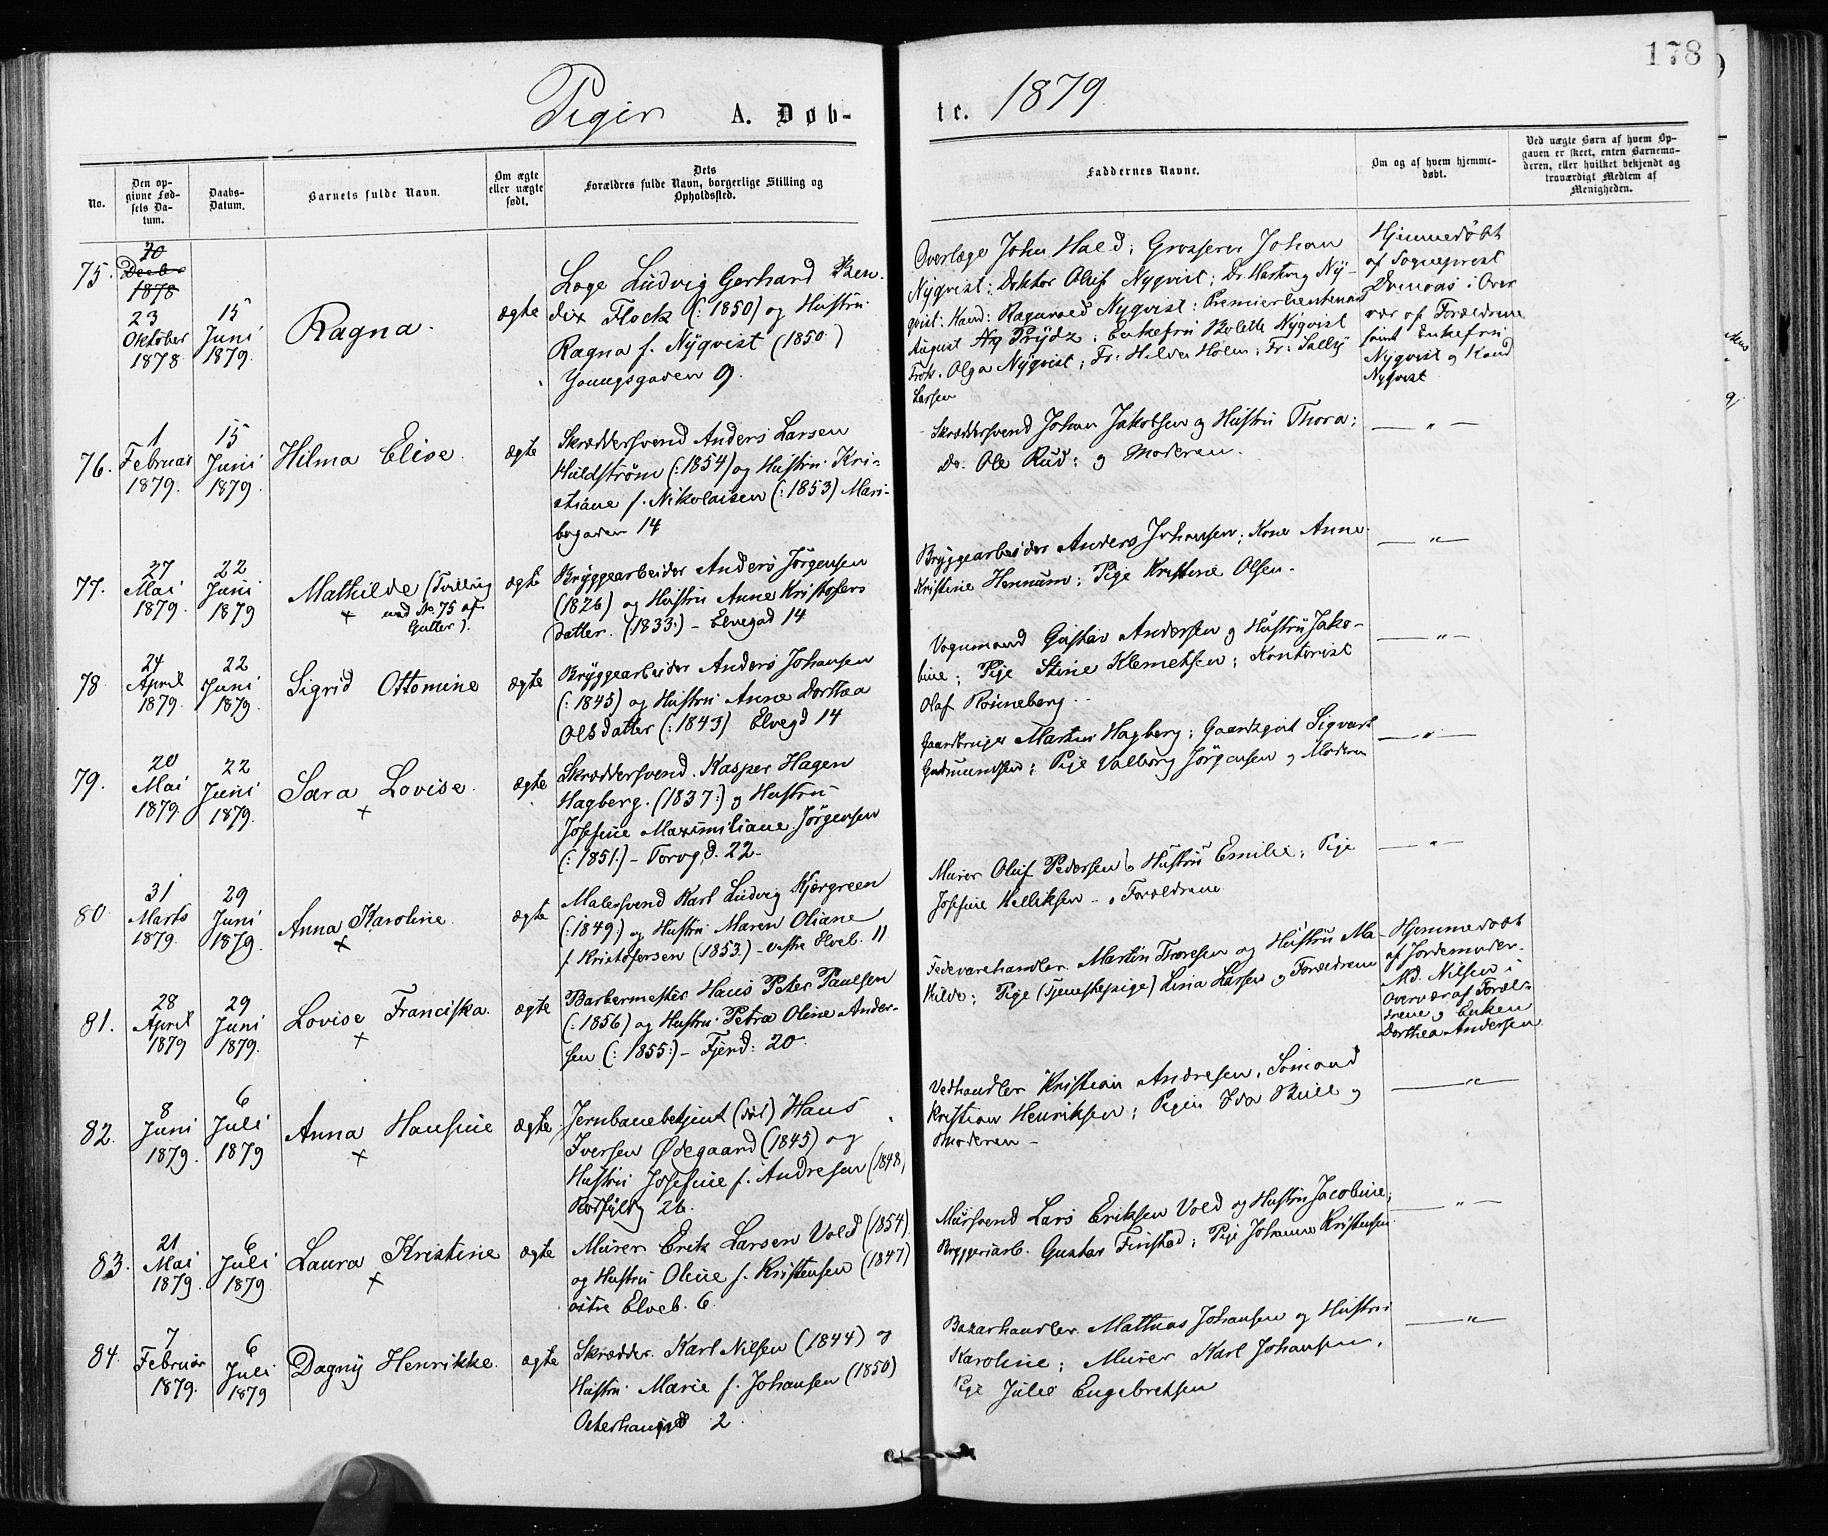 178
Piger A. Døb-
te. 1879.
No.
Den op-
givne Fød-
sels Da-
tum.
Daabs-
Datum.
Barnets fulde Navn.
Om ægte
eller uægte
født.
Dets
Forældres fulde Navn, borgerlige Stilling og
Opholdssted.
Faddernes Navne.
Om og af hvem hjemme-
døbt.
Ved uægte Børn af hvem Op-
gaven er skeet, enten Barnemo-
deren, eller hvilket bekjendt og
troværdigt Medlem af
Menigheden.
75.
1878
23
Oktober
1878
15
Juni
1879.
Ragna.
ægte
Læge Ludvig Gerhard Ben-
dix Flock (: 1850) og Hustru
Ragna f. Nyqvist (1850)
Youngsgaden 9.
Overlæge John Hald; Grosserer Johan
Nyqvist; Doktor Oluf Nyqvist; Dr. Hartvig Ny-
qvist; Kand: Ragnvald Nyqvist; Premierlieutenant
August Prydz; Enkefru Bolette Nyqvist
Frøk. Olga Nyqvist; Fr: Hilda Holm; Fr: Sally
Larsen
Hjemmedøbt
af Sogneprest
i Over
vær af Forældrene
samt Enkefru
Nyqvist og Kand
Nyqvist
76.
1
Februar
1879.
15
Juni
1879.
Hilma Elise.
ægte
Skræddersvend Anders Larsen
Huldstrøm (: 1854) og Hustru Kri-
stiane f. Nikolaisen (: 1853) Mari-
bogaden 14
Skræddersvend Johan Jakobsen og Hustru Thora;
Do. Ole Rud; og Moderen.
— " —
77.
27
Mai
1879
22
Juni
1879
Mathilde (Tvilling
med No 75 af
Gutter).
×
ægte
Bryggearbeider Anders Jørgensen
(1826) og Hustru Anne Kristofers
datter. (1833:) – Elvegad 14
Bryggearbeider Anders Johansen; Kone Anne
Kristine Hennum; Pige Kristine Olsen.
— " —
78.
24
April
1879.
22
Juni
1879.
Sigrid Ottomine
ægte
Bryggearbeider Anders Johansen
(: 1845) og Hustru Anne Dorthea
Olsdatter (: 1843) Elvegd 14
Vognmand Gustav Andersen og Hustru Jako-
bine; Pige Stine Klemetsen; Kontorist
Olaf Rønneberg.
— " —
79.
20
Mai
1879.
22
Juni
1879.
Sara Lovise.
×
ægte
Skræddersvend. Kasper Hagen
Hagberg. (1837:) og Hustru
Josefine Maximiliane Jørgensen
(: 1851:) – Torvgd. 22.
Gaardbruger Martin Hagberg; Gaardsgut Sigvart
Gudmundsen; Pige Valborg Jørgensen og Moderen
— " —
80.
31
Marts
1879.
29
Juni
1879.
Anna Karoline.
×
ægte
Malersvend Karl Ludvig Kjergreen
(: 1849:) og Hustru Maren Oliane
f. Kristofersen (1853:) – vestre Elveb. 11
Murer Oluf Pedersen og Hustru Emilie; Pige
Josefine Kelliksen – og Forældrene
— " —
81.
28
April
1879
29
Juni
1879.
Lovise Franciska.
×
ægte
Barbermester Hans Peter Paulsen
(: 1856) og Hustru Petra Oline Ander-
sen (: 1855:) – Fjerd: 20.
Fedevarehandler Martin Thoresen og Hustru Ma-
thilde; Pige (Tjenestepige) Lina Larsen og Forældrene
Hjemmedøbt
af Jordemoder
Md. Nilsen i
Overvær af Foræl-
drene og Enken
Dorthea Andersen
82.
8
Juni
1879.
6
Juli
1879
Anna Hansine
×
ægte
Jernbanebetjent (død) Hans
Iversen Ødegaard (1845) og
Hustru Josefine f. Andresen (1848)
26.
Vedhandler Kristian Andresen, Sømand
Kristian Henriksen; Pigen Ida Bull og
Moderen –
— " —
83.
21
Mai
1879.
6
Juli
1879.
Laura Kristine
×
ægte
Murer Erik Larsen Vold (1854)
og Hustru Oline f. Kristensen (1847)
østre Elveb. 6.
Mursvend Lars Eriksen Vold og Hustru Jacobine;
Bryggeriarb. Gustav Finstad; Pige Johanne Kristensen
— " —
84.
7
Februar
1879.
6
Juli
1879
Dagny Henrikke.
ægte
Skrædder Karl Nilsen (1844) og
Hustru Marie f. Johansen (1850)
Osterhausgd 2.
Bazarhandler Mathias Johansen og Hustru
Karoline; Murer Karl Johansen,
Pige Julie Engebretsen
— " —